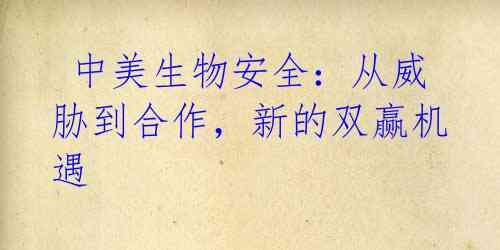 中美生物安全：从威
胁到合作，新的双赢机
遇